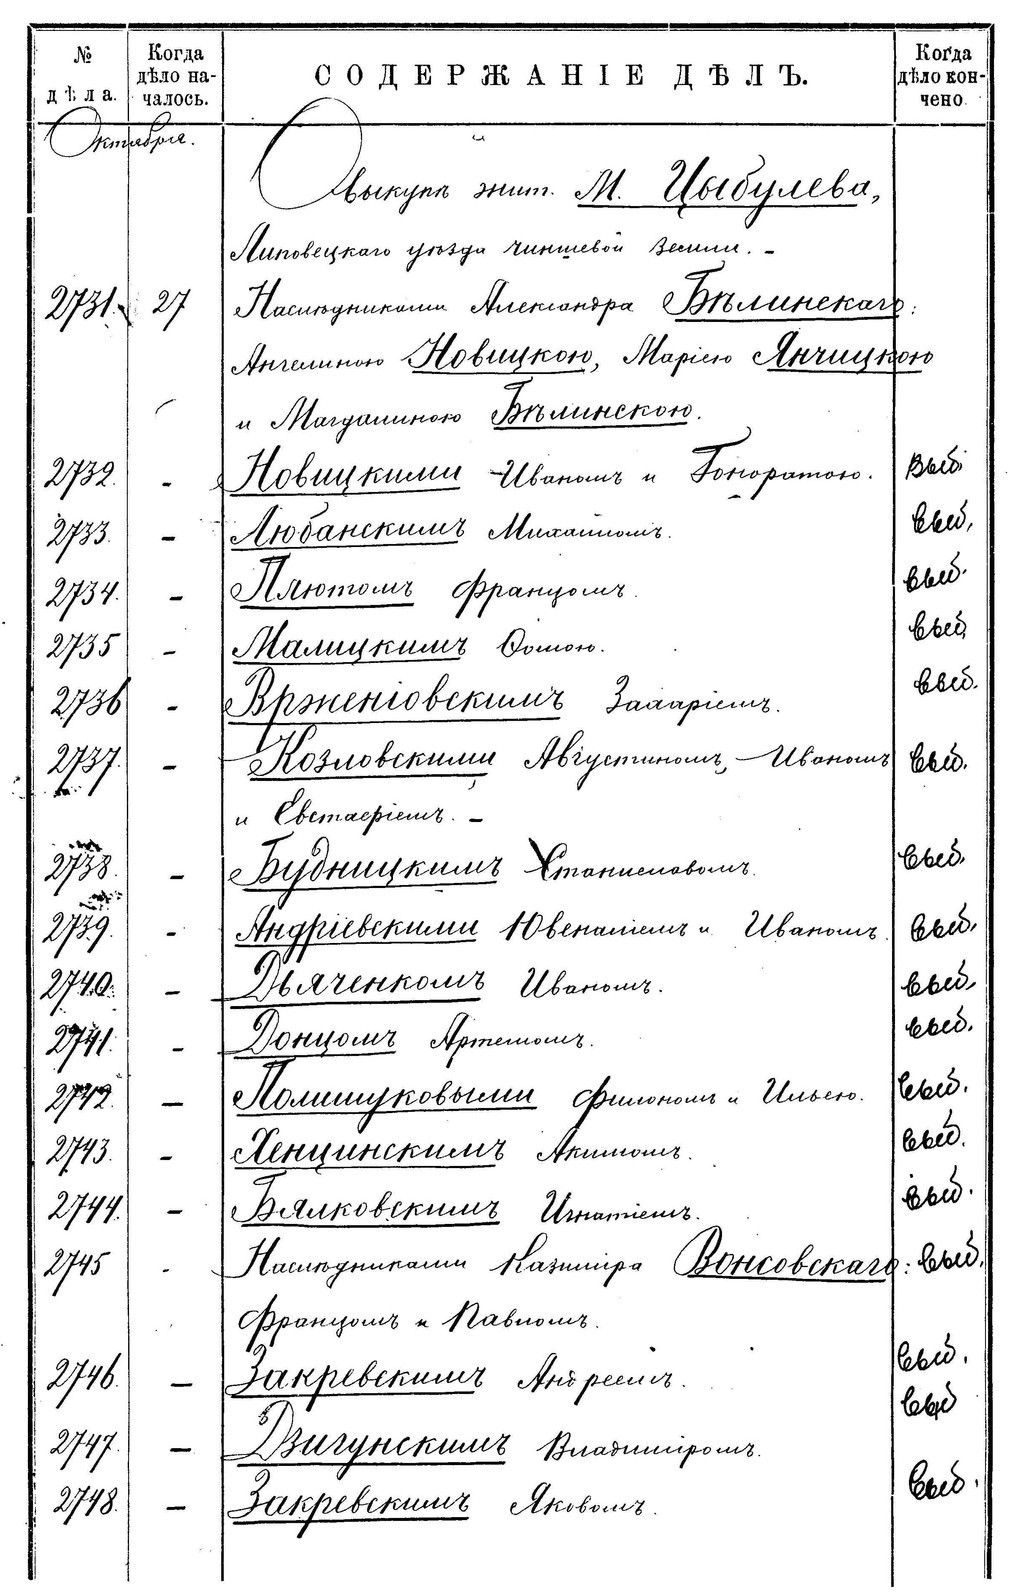 № дѣла.
Когда дѣло началось.
СОДЕРЖАНІЕ ДѢЛЪ.
Когда дѣло кончено
Октября.
О выкупѣ жит. М. Цыбулева,
Липовецкаго уѣзда чиншевой земли. –
2731. 27 Наслѣдниками Александра Бѣлинскаго:
Ангелиною Новицкою, Маріею Янчицкою
и Магдалиною Бѣлинскою.
2732. - Новицкими Иваномъ и Гоноратою. выб.
2733. - Любанскимъ Михаиломъ. выб.
2734. - Плютомъ Францомъ. выб.
2735 - Малицкимъ Ѳомою. выб.
2736 - Врженіовскимъ Захаріемъ. выб.
2737. - Козловскими Августиномъ, Иваномъ выб.
и Евстафіемъ. –
2738. - Будницкимъ Станиславомъ. выб.
2739. - Андріевскими Ювеналіемъ и Иваномъ. выб.
2740. - Дьяченкомъ Иваномъ. выб.
2741. - Донцомъ Артемомъ. выб.
2742. - Полищуковыми Филономъ и Ильею. выб.
2743. - Хенцинскимъ Акимомъ. выб.
2744. - Бялковскимъ Игнатіемъ. выб.
2745 - Наслѣдниками Казиміра Вонсовскаго: выб.
Францомъ и Павломъ.
2746. - Закревскимъ Андреемъ. выб.
2747. - Двигунскимъ Владиміромъ. выб
2748. - Закревскимъ Яковомъ. выб.